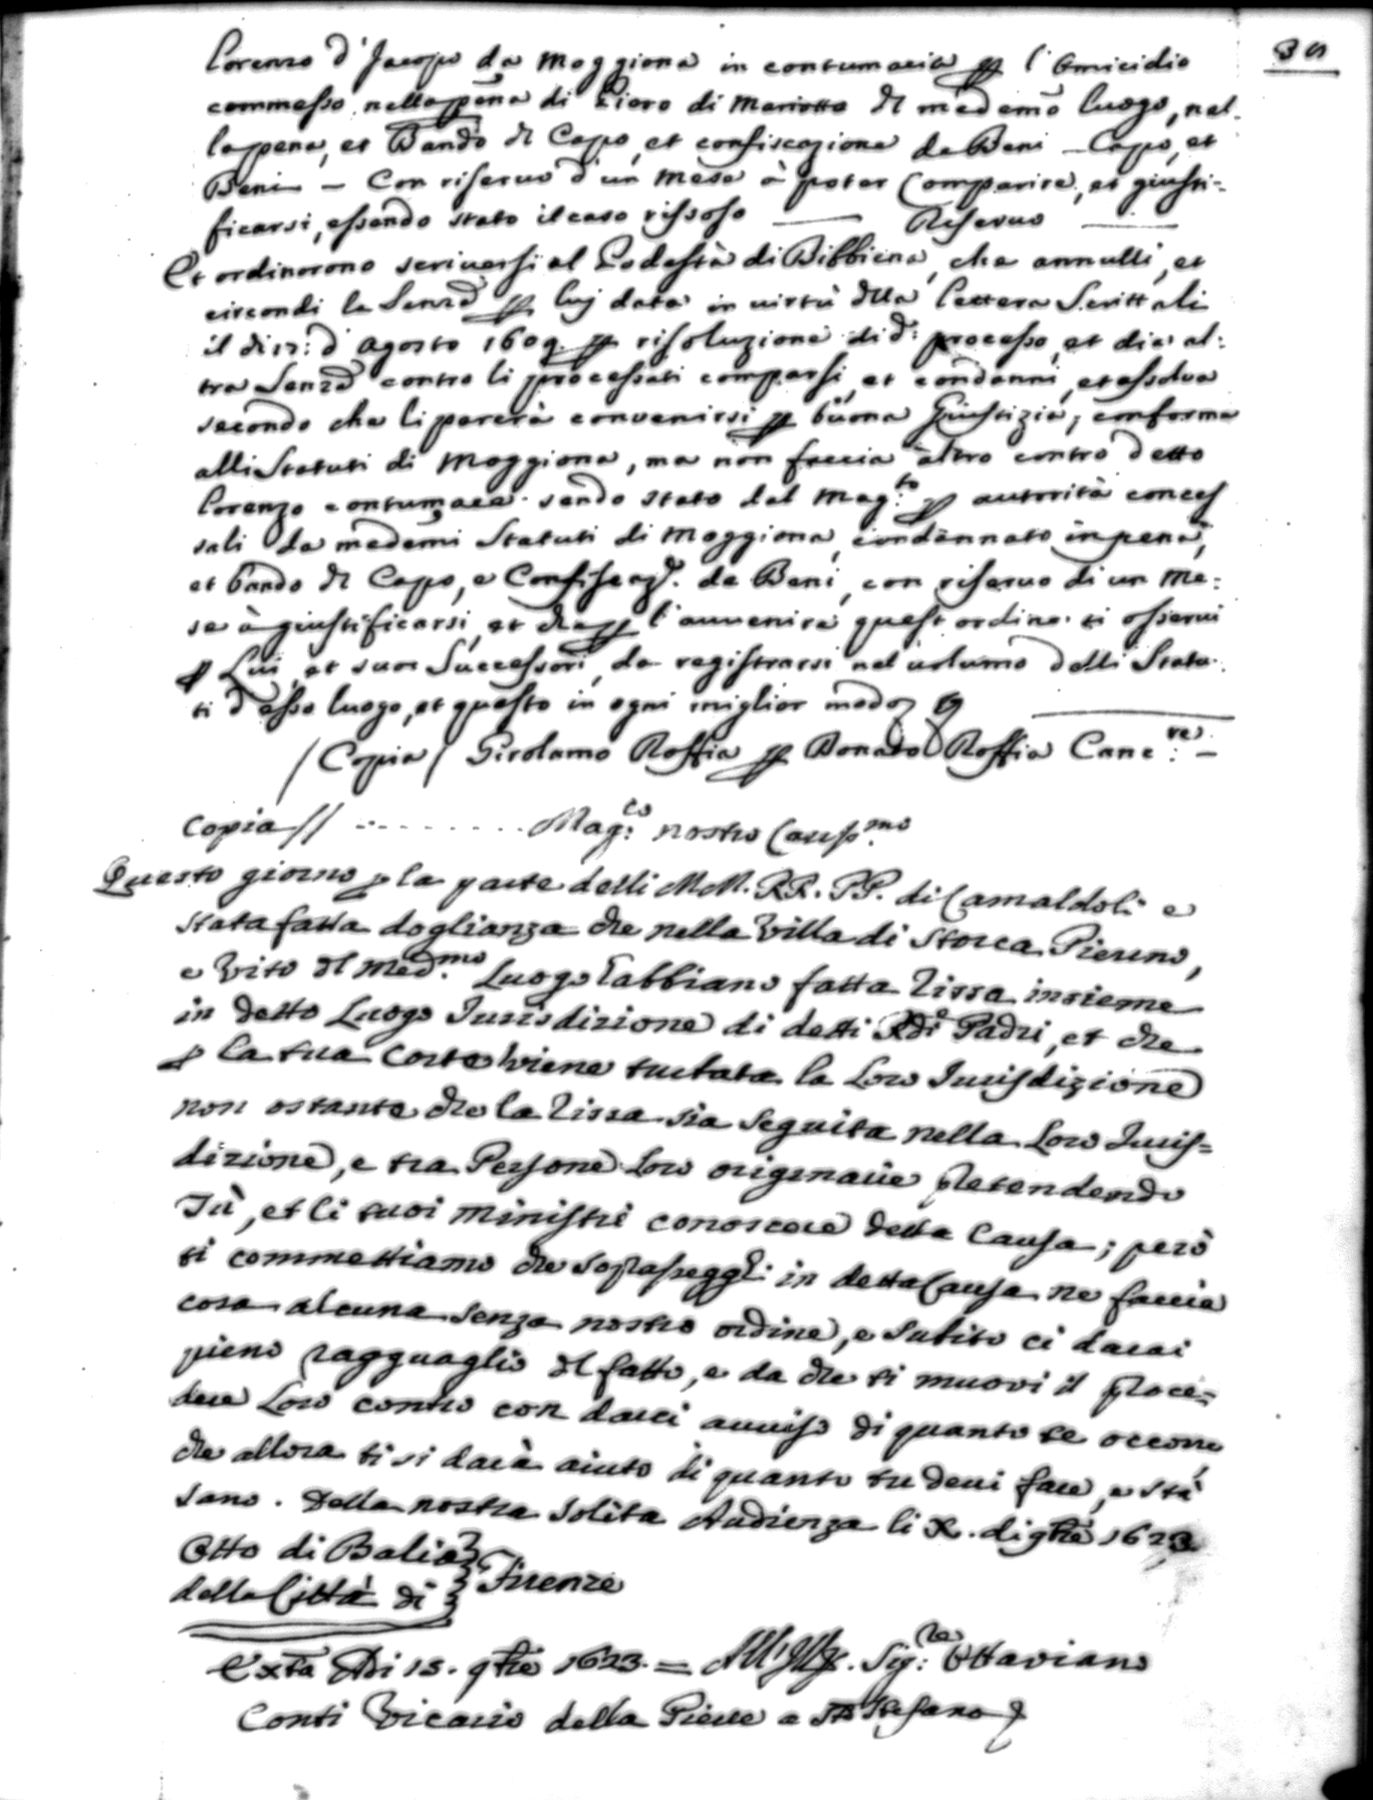 39
Lorenzo d'Jacopo da Moggiona in contumacia p l'Omicidio
commesso nella pna di Piero di Mariotto dl medemo luogo, nel-
la pena, et Bando dl Capo, et confiscazione de Beni - Capo, et
Beni - Con riservo d'un mese à poter Comparire, et giusti-
ficarsi, essendo stato il caso rissoso — Riservo —
Et ordinorono scriversi al Podestà di Bibbiena, che annulli, et
circondi la Senza p luj data in virtù dlla lettera Scrittali
il di 17: d'Agosto 1609. p risoluzione di d: processo, et die al:
tra Senza contro li processati comparsi, et condanni, et assolva
secondo che li parerà convenirsi p buona Giustizia, conforme
alli Statuti di Moggiona, ma non faccia altro contro detto
Lorenzo contumace sendo stato dal Mag:to p autorità conces
sali da medemi Statuti di Moggiona, condannato in pena,
et bando dl Capo, e Confiscaz. de Beni, con riservo di un Me:
se à giustificarsi, et che p l'avvenire quest ordine ti osservi
p Lui, et suoi Successori, da registrarsi nel volume delli Statu-
ti d'esso luogo, et questo in ogni miglior modo
/ Copia / Girolamo Roffia p Donato Roffia Canc:re —
Copia // .......... Mag:co nostro Cariss.mo
Questo giorno p la parte delli MM. RR. PP. di Camaldoli e
stata fatta doglianza che nella Villa di Storca Pierino,
e Vito dl Med.mo Luogo habbiano fatta rissa insieme
in detto Luogo Jurisdizione di detti Rdi Padri, et che
p la tua Corte viene turbata la Loro Jurisdizione
non ostante che la rissa sia seguita nella Loro Juris=
dizione, e tra Persone Loro originarie pretendendo
Tù, et li tuoi ministri conoscere detta Causa; però
ti commettiamo che soprasegghi in detta Causa ne faccia
cosa alcuna senza nostro ordine, e subito ci darai
pieno ragguaglio dl fatto, e da che ti muovi il proce=
dere Loro contro con darci avviso di quanto te occorre
che allora ti si darà aiuto di quanto tu devi fare, e stà
sano. Della nostra solita Audienza li X. di 9bre 1623
Otto di Balia
della Città di } Firenze
Exta Adi 15. 9bre 1623. = Sig:re Ottaviano
Conti Vicario della Pieve a Sto Stefano